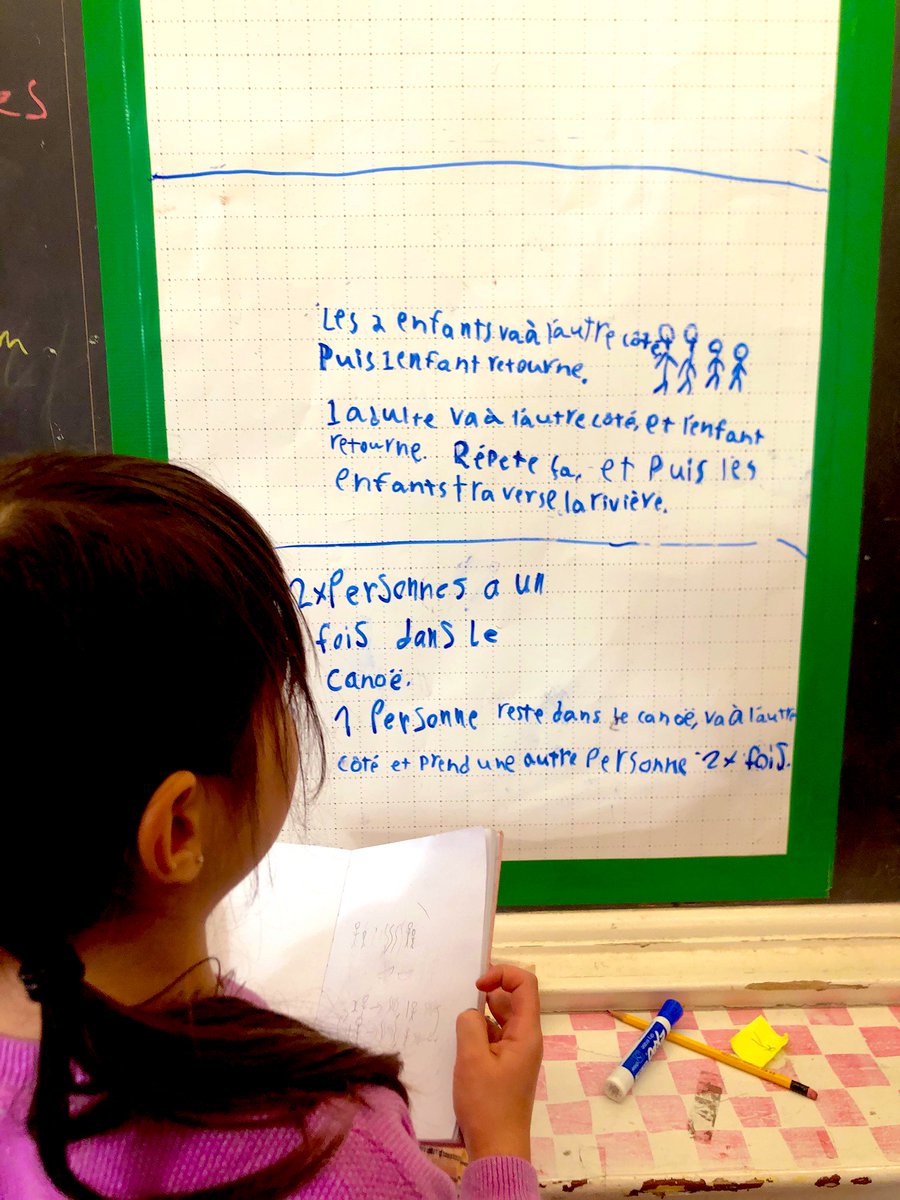 es
n.
Les 2 enfants va à l'autre côté,
Puis 1 enfant retourne.
1 adulte va à l'autre côté, et l'enfant
retourne. Répete ça, et puis les
enfants traverse la rivière.
2x Personnes a un
fois dans le
canoë.
1 Personne reste dans le canoë, va à l'autre
côté et prend une autre Personne 2x fois.
EXPO